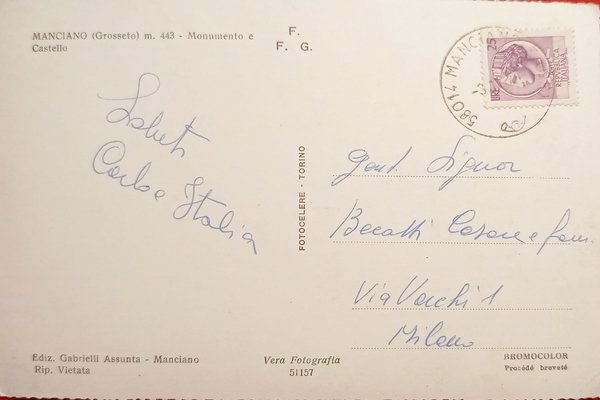 MANCIANO (Grosseto) m. 443 - Monumento e
Castello
F.
F. G.
58014 MANCIANO
LIRE 25
Saluti
Carlo e Italia
FOTOCELERE - TORINO
Gent. Signor
Becatti Cesare e fam.
Via Varchi 1
Milano
Ediz. Gabrielli Assunta - Manciano
Rip. Vietata
Vera Fotografia
51157
BROMOCOLOR
Procédé breveté